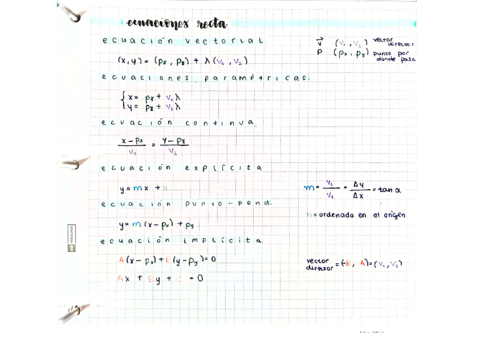 ecuaciones recta
ecuación vectorial
(x,y) = (px, py) + λ(v₁, v₂)
v⃗ (v₁, v₂) vector director
P (px, py) punto por donde pasa
ecuaciones paramétricas
{x = px + v₁λ
{y = py + v₂λ
ecuación continua
x-px / v₁ = y-py / v₂
ecuación explícita
y = mx + n
m = v₂ / v₁ = Δy / Δx = tan α
n = ordenada en el origen
ecuación punto-pend.
y = m(x-px) + py
ecuación implícita
A(x-px) + B(y-py) = 0
Ax + By + C = 0
vector director = (-B, A) = (v₁, v₂)